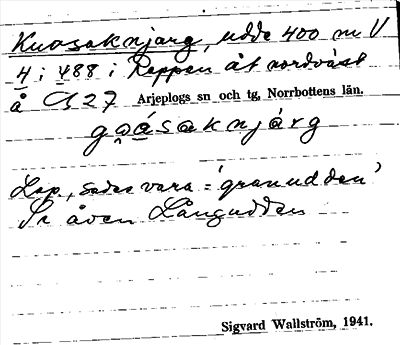 Kuosaknjarg, udde 400 m V
4 i 488 i Reppen åt nordväst
å G 27 Arjeplogs sn och tg, Norrbottens län.
gωásaknjárg
Lap., sades vara = 'granudden'
Se även Långudden
Sigvard Wallström, 1941.